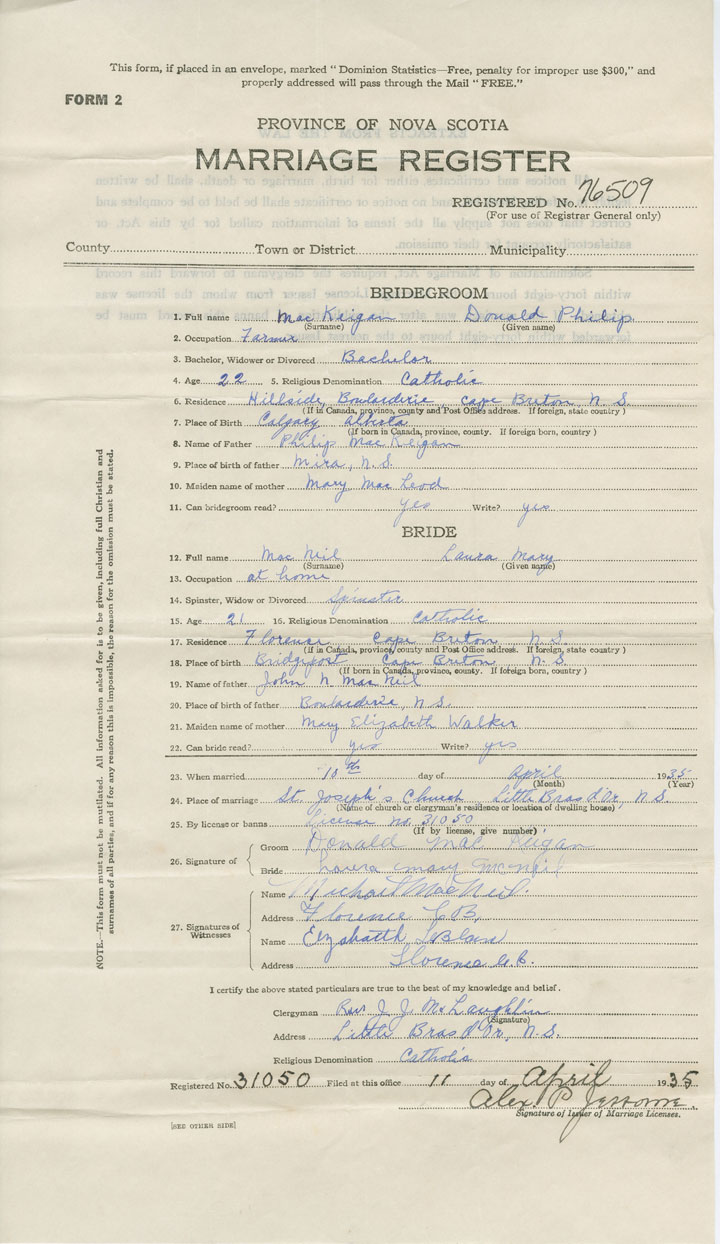 This form, if placed in an envelope, marked " Dominion Statistics—Free, penalty for improper use $300," and
properly addressed will pass through the Mail " FREE."
FORM 2
PROVINCE OF NOVA SCOTIA
MARRIAGE REGISTER
REGISTERED No. 76509
(For use of Registrar General only)
County Town or District Municipality
BRIDEGROOM
1. Full name Mac Keigan Donald Philip
(Surname) (Given name)
2. Occupation Farmer
3. Bachelor, Widower or Divorced Bachelor
4. Age 22 5. Religious Denomination Catholic
6. Residence Hillside, Boularderie, Cape Breton N. S.
(If in Canada, province, county and Post Office address. If foreign, state country )
7. Place of Birth Calgary Alberta
(If born in Canada, province, county. If foreign born, country )
8. Name of Father Philip Mac Keigan
9. Place of birth of father Mira, N.S.
10. Maiden name of mother Mary Mac Leod
11. Can bridegroom read? yes Write? yes
BRIDE
12. Full name Mac Neil Laura Mary
(Surname) (Given name)
13. Occupation at home
14. Spinster, Widow or Divorced Spinster
15. Age 21 16. Religious Denomination Catholic
17. Residence Florence Cape Breton N.S.
(If in Canada, province, county and Post Office address. If foreign, state country )
18. Place of birth Bridgeport Cape Breton N. S.
(If born in Canada, province, county. If foreign born, country )
19. Name of father John N Mac Neil
20. Place of birth of father Boularderie, N.S.
21. Maiden name of mother Mary Elizabeth Walker
22. Can bride read? yes Write? yes
23. When married 10th day of April 1935
(Month) (Year)
24. Place of marriage St. Joseph's Church Little Bras d'Or, N.S.
(Name of church or clergyman's residence or location of dwelling house)
25. By license or banns License no. 31050
(If by license, give number)
26. Signature of
Groom Donald Mac Keigan
Bride Laura mary mcneil
27. Signatures of Witnesses
Name Michael MacNeil
Address Florence C.B.
Name
Address Florence C.B.
I certify the above stated particulars are true to the best of my knowledge and belief.
Clergyman Rev J. J. McLaughlin
(Signature)
Address Little Bras d'Or, N.S.
Religious Denomination Catholic
Registered No. 31050 Filed at this office 11 day of April 1935
Alex P Jessome
Signature of Issuer of Marriage Licenses.
[SEE OTHER SIDE]
NOTE.—This form must not be mutilated. All information asked for is to be given, including full Christian and
surnames of all parties, and if for any reason this is impossible, the reason for the omission must be stated.